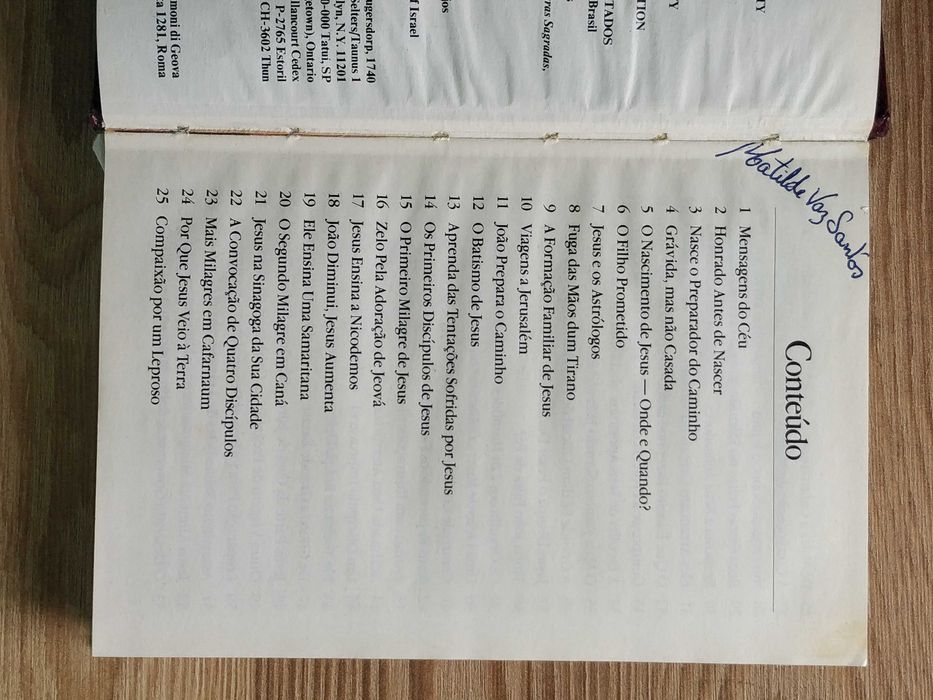 TY
TY
TION
TADOS
Brasil
ras Sagradas,
f Israel
ugersdorp, 1740
Selters/Taunus 1
lyn, N.Y. 11201
0-000 Tatuí, SP
getown), Ontario
llancourt Cedex
P-2765 Estoril
CH-3602 Thun
moni di Geova
ca 1281, Roma
Matilde Vaz Santos
Conteúdo
1 Mensagens do Céu
2 Honrado Antes de Nascer
3 Nasce o Preparador do Caminho
4 Grávida, mas não Casada
5 O Nascimento de Jesus — Onde e Quando?
6 O Filho Prometido
7 Jesus e os Astrólogos
8 Fuga das Mãos dum Tirano
9 A Formação Familiar de Jesus
10 Viagens a Jerusalém
11 João Prepara o Caminho
12 O Batismo de Jesus
13 Aprenda das Tentações Sofridas por Jesus
14 Os Primeiros Discípulos de Jesus
15 O Primeiro Milagre de Jesus
16 Zelo Pela Adoração de Jeová
17 Jesus Ensina a Nicodemos
18 João Diminui, Jesus Aumenta
19 Ele Ensina Uma Samaritana
20 O Segundo Milagre em Caná
21 Jesus na Sinagoga da Sua Cidade
22 A Convocação de Quatro Discípulos
23 Mais Milagres em Cafarnaum
24 Por Que Jesus Veio à Terra
25 Compaixão por um Leproso